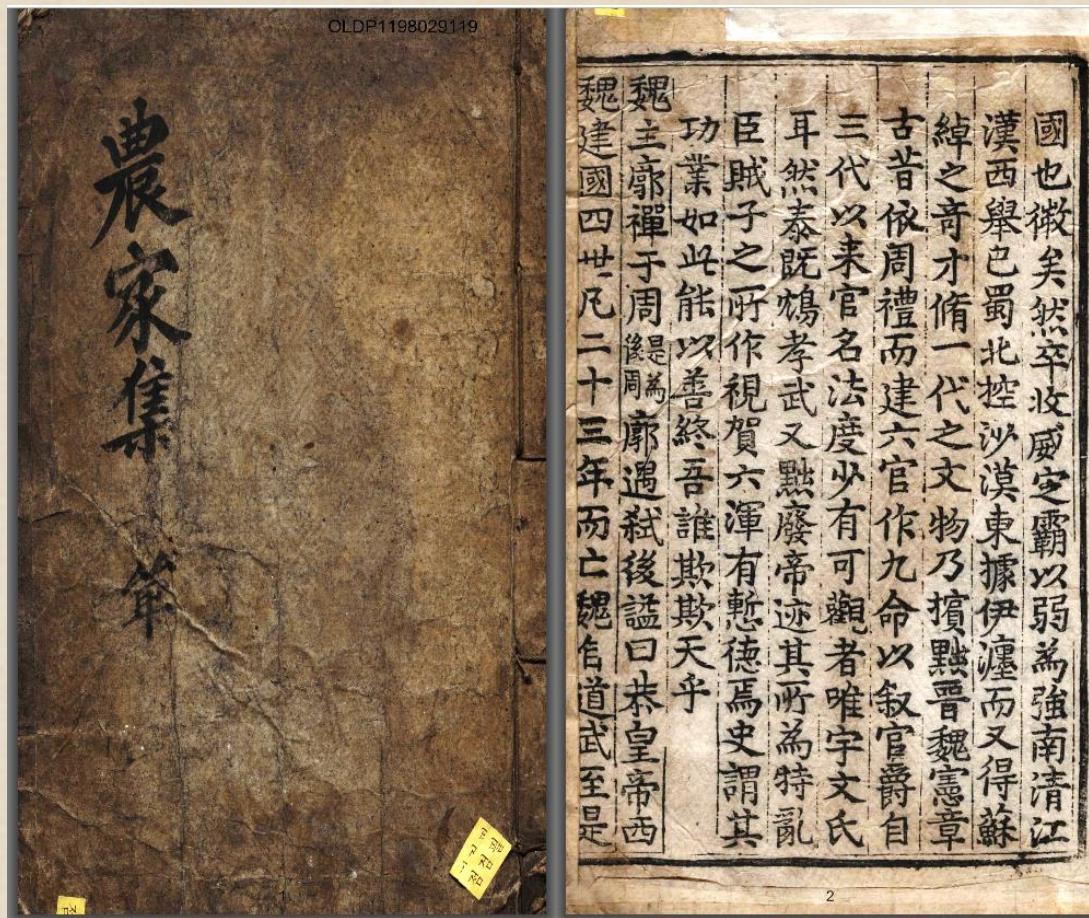 OLDP1198029119
農家集
1
國也微矣然卒收威定霸以弱為強南清江
漢西舉巴蜀北控沙漠東據伊瀍而又得蘇
綽之奇才脩一代之文物乃擯黜晉魏憲章
古昔依周禮而建六官作九命以叙官爵自
三代以来官名法度少有可觀者唯宇文氏
耳然泰既鴆孝武又黜廢帝迹其所為特亂
臣賊子之所作視賀六渾有慙德焉史謂其
功業如此能以善終吾誰欺欺天乎
魏主廓禪于周是為後周廓遇弑後謚曰恭皇帝西
魏建國四世凡二十三年而亡魏自道武至是
2